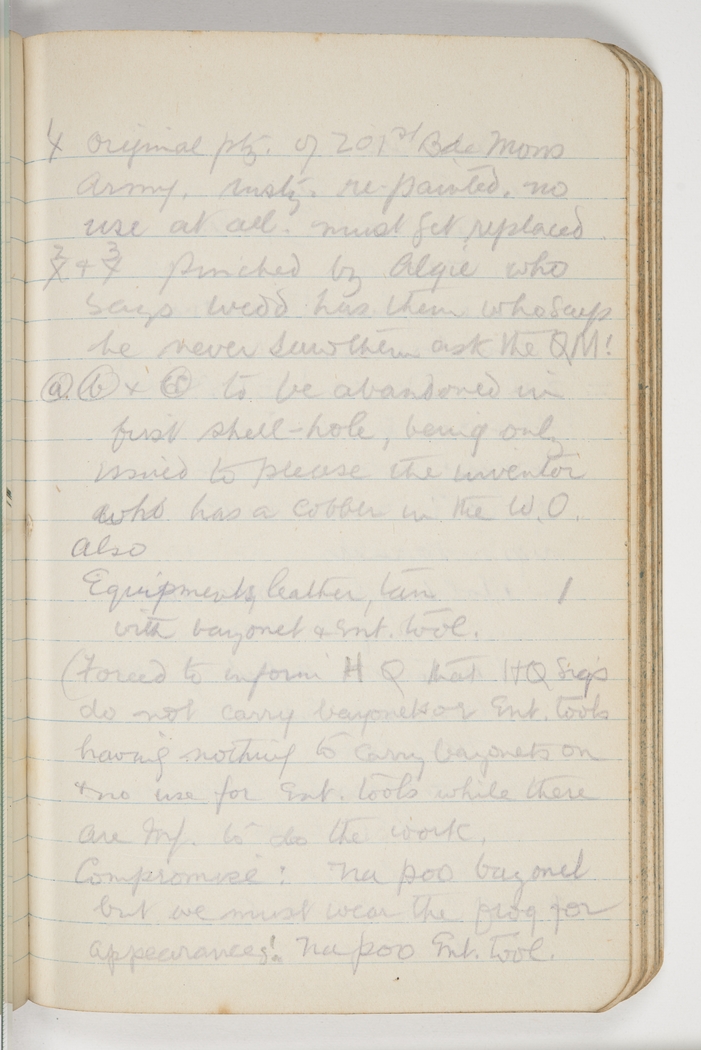 4 Original pty. of 201st Bde Mons
Army, rusty. re-painted. no
use at all. must get replaced
2 + 3 pinched by Algie who
says Wedd has them who says
he never saw them ask the QM!
(a) (b) + (c) to be abandoned in
first shell-hole, being only
issued to please the inventor
who has a cobber in the W.O.
Also
Equipments, leather, tan 1
with bayonet & Ent. tool.
(Forced to inform HQ that HQ Sigs
do not carry bayonets or Ent. tools
having nothing to carry bayonets on
& no use for Ent. tools while there
are Inf. to do the work.
Compromise: Na poo bayonet
but we must wear the frog for
appearances! Na poo Ent. tool.